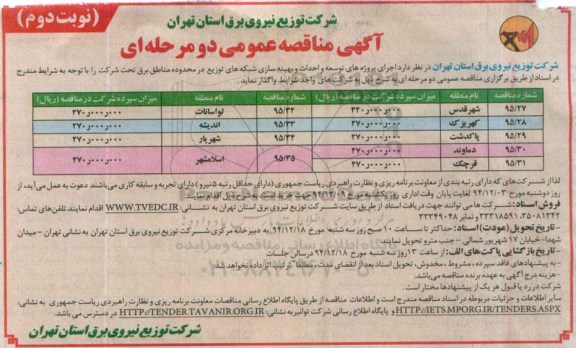 شرکت توزیع نیروی برق استان تهران
(نوبت دوم)
آگهی مناقصه عمومی دو مرحله ای
شرکت توزیع نیروی برق استان تهران در نظر دارد اجرای پروژه های توسعه و احداث و بهینه سازی شبکه های توزیع در محدوده مناطق برق تحت شرکت را با توجه به شرایط مندرج
در اسناد از طریق برگزاری مناقصه عمومی دو مرحله ای به شرح ذیل به شرکت های واجد شرایط واگذار نماید.
شماره مناقصه نام منطقه میزان سپرده شرکت در مناقصه (ریال) شماره مناقصه نام منطقه میزان سپرده شرکت در مناقصه (ریال)
۹۵/۲۷ شهرقدس ۳۲۰٫۰۰۰٫۰۰۰ ۹۵/۳۲ لواسانات ۲۷۰٫۰۰۰٫۰۰۰
۹۵/۲۸ کهریزک ۲۷۰٫۰۰۰٫۰۰۰ ۹۵/۳۳ اندیشه ۲۷۰٫۰۰۰٫۰۰۰
۹۵/۲۹ پاکدشت ۲۷۰٫۰۰۰٫۰۰۰ ۹۵/۳۴ شهریار ۲۷۰٫۰۰۰٫۰۰۰
۹۵/۳۰ دماوند ۲۷۰٫۰۰۰٫۰۰۰ ۹۵/۳۵ اسلامشهر ۲۷۰٫۰۰۰٫۰۰۰
۹۵/۳۱ قرچک ۲۷۰٫۰۰۰٫۰۰۰
لذا از شرکت های که دارای رتبه بندی از معاونت برنامه ریزی و نظارت راهبردی ریاست جمهوری (دارای حداقل رتبه ۵ نیرو) دارای تجربه و سابقه کاری می باشند دعوت به عمل می آید از
روز دوشنبه مورخ ۹۴/۱۲/۰۳ لغایت پایان وقت اداری روز یکشنبه مورخ ۹۴/۱۲/۰۹ جهت خرید اسناد به شرح ذیل اقدام نمایند.
فروش اسناد: شرکت ها می توانند جهت دریافت اسناد از طریق سایت شرکت توزیع نیروی برق استان تهران به نشانی WWW.TVEDC.IR اقدام نمایند. تلفن های تماس:
۳۵۰۸۱۳۴۲ و ۳۳۳۱۸۵۹۱ و نمابر ۳۳۳۴۹۰۴۸
- تاریخ تحویل (عودت) اسناد: حداکثر تا ساعت ۱۰ صبح روز سه شنبه مورخ ۹۴/۱۲/۱۸ به دبیرخانه مرکزی شرکت توزیع نیروی برق استان تهران به نشانی تهران - میدان
شهدا - خیابان ۱۷ شهریور شمالی - جنب مترو تحویل نمایند.
- تاریخ بازگشایی پاکت های الف: از ساعت ۱۳ روز سه شنبه مورخ ۹۴/۱۲/۱۸ در سالن جلسات
- به پیشنهادهای فاقد سپرده، مشروط، مخدوش، تحویل اسناد بعد از انقضای مدت، مطلقا ترتیب اثر داده نخواهد شد.
- هزینه درج آگهی به عهده برنده مناقصه می باشد.
شرکت در رد یا قبول هر یک از پیشنهادها مختار است.
سایر اطلاعات و جزئیات مربوطه در اسناد مناقصه مندرج است و اطلاعات مناقصه از طریق پایگاه اطلاع رسانی مناقصات معاونت برنامه ریزی و نظارت راهبردی ریاست جمهوری به نشانی:
HTTP://IETS.MPORG.IR/TENDERS.ASPX و پایگاه اطلاع رسانی شرکت توانیر به نشانی: HTTP://TENDER.TAVANIR.ORG.IR در دسترس می باشد.
شرکت توزیع نیروی برق استان تهران